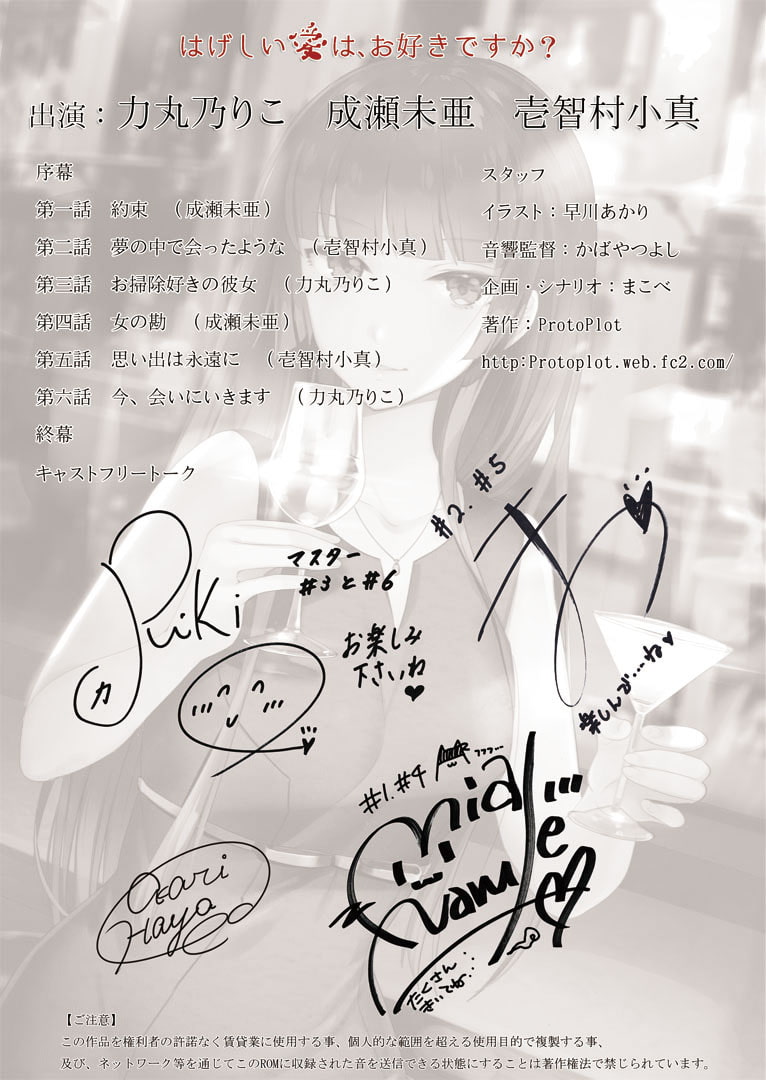 はげしい愛は、お好きですか?
出演：力丸乃りこ　成瀬未亜　壱智村小真
序幕
第一話　約束　（成瀬未亜）
第二話　夢の中で会ったような　（壱智村小真）
第三話　お掃除好きの彼女　（力丸乃りこ）
第四話　女の勘　（成瀬未亜）
第五話　思い出は永遠に　（壱智村小真）
第六話　今、会いにいきます　（力丸乃りこ）
終幕
キャストフリートーク
スタッフ
イラスト：早川あかり
音響監督：かばやつよし
企画・シナリオ：まこべ
著作：ProtoPlot
http:Protoplot.web.fc2.com/
#2. #5
マスター
#3と#6
お楽しみ
下さいね
カ
楽しんが…ね
#1. #4
Mia
Naruse
Acari
Haya
たくさん
【ご注意】
この作品を権利者の許諾なく賃貸業に使用する事、個人的な範囲を超える使用目的で複製する事、
及び、ネットワーク等を通じてこのROMに収録された音を送信できる状態にすることは著作権法で禁じられています。